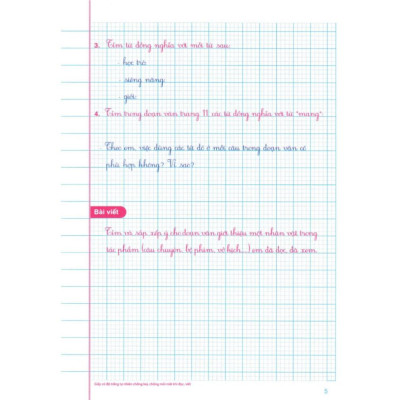 3. Tìm từ đồng nghĩa với mỗi từ sau:
học trò:
siêng năng:
giỏi:
4. Tìm trong đoạn văn trang 11 các từ đồng nghĩa với từ "mang".
Theo em, việc dùng các từ đó ở mỗi câu trong đoạn văn có
phù hợp không? Vì sao?
Bài viết
Tìm và sắp xếp ý cho đoạn văn giới thiệu một nhân vật trong
tác phẩm (câu chuyện, bộ phim, vở kịch...) em đã đọc, đã xem.
3